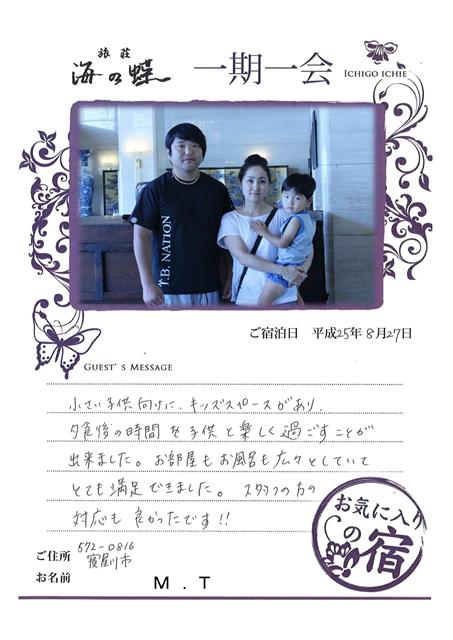 旅荘
海の蝶
一期一会
ICHIGO ICHIE
T.B. NATION
ご宿泊日 平成25年8月27日
GUEST'S MESSAGE
小さい子供向けに、キッズスペースがあり、
夕食後の時間を子供と楽しく過ごすことが
出来ました。お部屋もお風呂も広々としていて
とても満足できました。スタッフの方の
対応も良かったです!!
お気に入り
の宿
ご住所 572-0816
寝屋川市
お名前 M.T